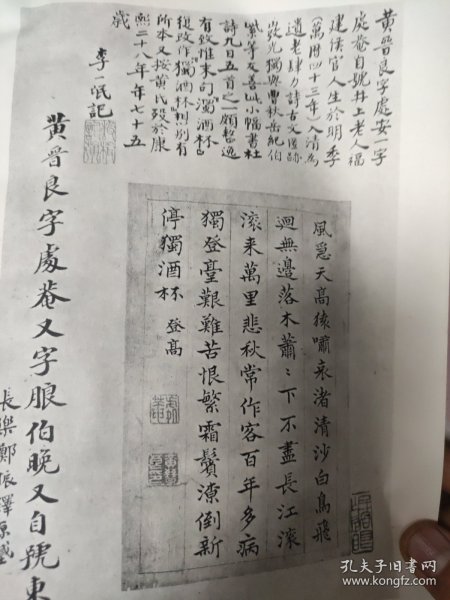 黄晋良字處安字
處菴自號井上老人福
建侯官人生於明季
(萬曆四十三年)入清為
遺老肆力詩古文
獨與曹秋岳紀伯
紫等友善此小幅書杜
詩九日五首之一頗整逸
有致惟末句濁酒杯
改作獨酒杯想別有
所本又按黄氏殁於康
熙二十八年年七十五
歲
李一氓記
風急天高猿嘯哀渚清沙白鳥飛
迴無邊落木蕭〻下不盡長江滾
滚来萬里悲秋常作客百年多病
獨登臺艱難苦恨繁霜鬢潦倒新
停獨酒杯 登高
黄晋良字處菴又字朖伯晚又自號東
長樂鄭振鐸原藏
孔夫子旧书网
www.kongfz.com